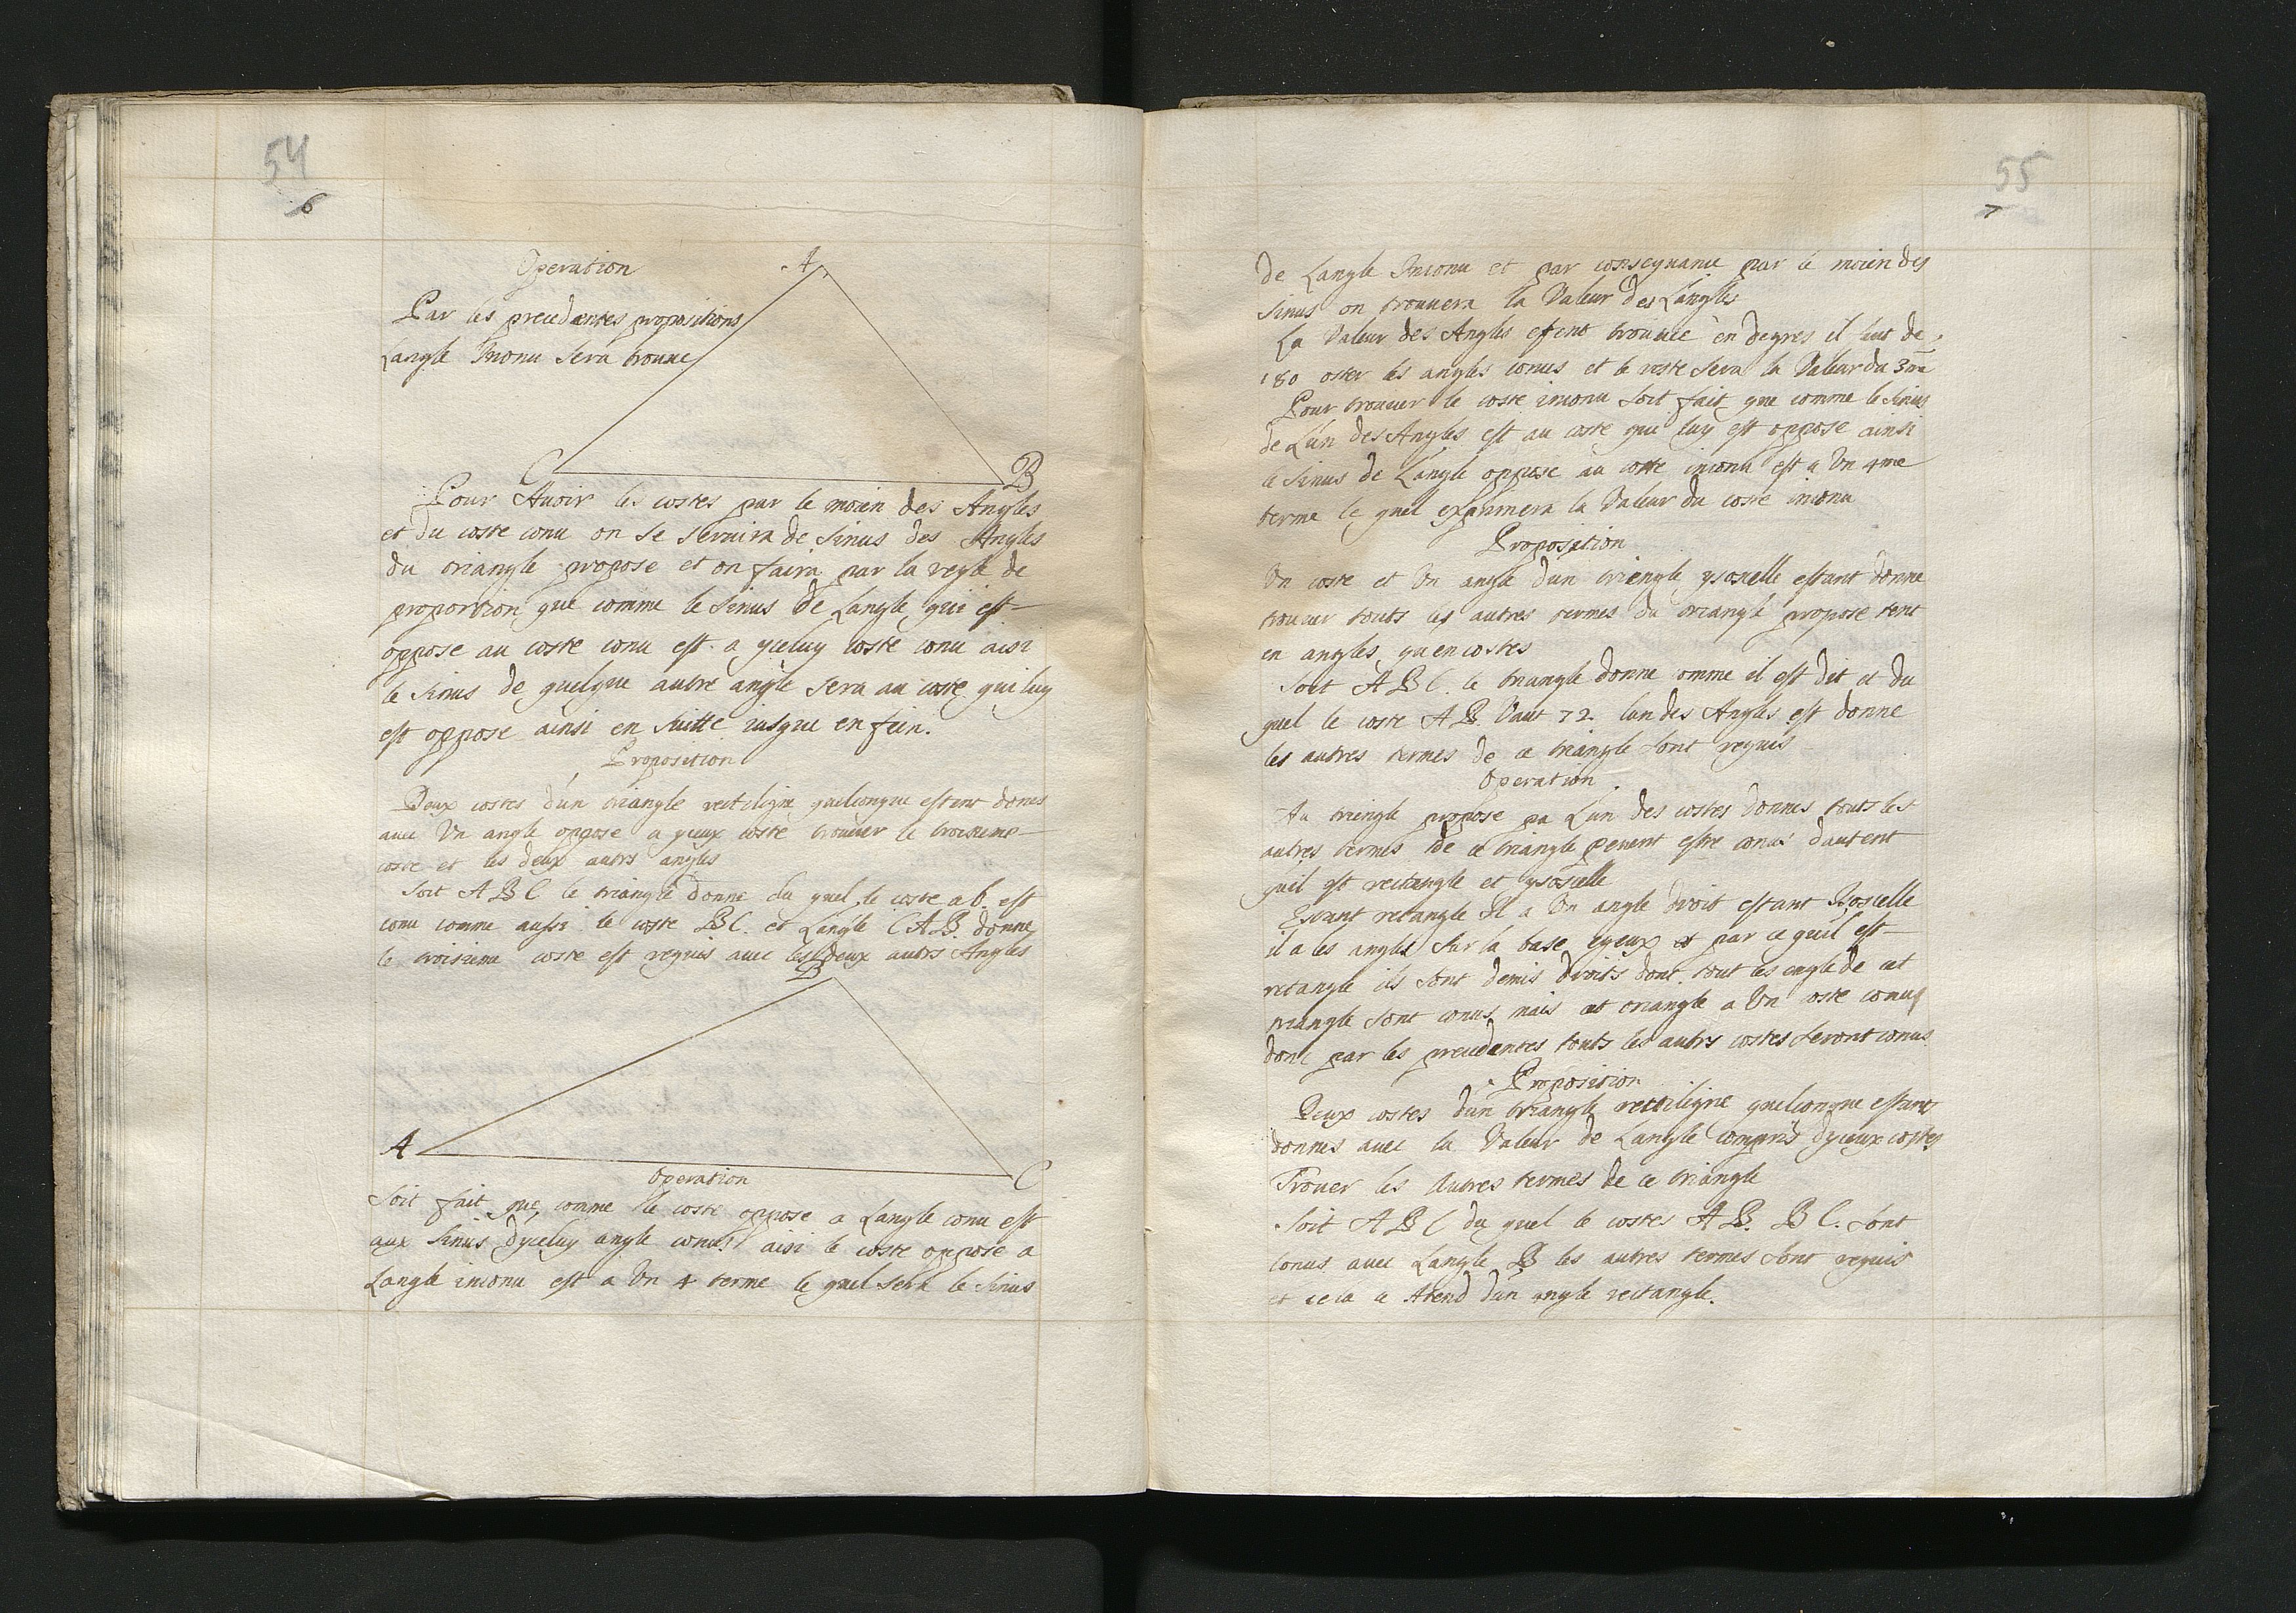 54
6
Operation
A
Par les precedentes propositions
Langle Inconu sera trouue
C
B
Pour Auoir les costes par le moien des Angles
et du coste conu on se seruira de sinus des Angles
du triangle propose et on faira par la regle de
proportion que comme le sinus de Langle qui est
oppose au coste conu est a yceluy coste conu aisi
le sinus de quelque autre angle sera au coste qui luy
est oppose ainsi en suitte iusque en fein.
Proposition
Deux costes d'un triangle rectiligne quelconque estant dones
auec Un angle oppose a yceux coste trouuer le troisieme
coste et les deux autrs angles
Soit ABC le triangle donne du quel le coste ab. est
conu comme aussi le coste BC. et Langle CAB. donne
le troisieme coste est requis auec les deux autrs Angles
B
A
C
Operation
Soit fait que comme le coste oppose a Langle conu est
aux sinus d'yceluy angle conu: aisi le coste oppose a
Langle inconu est a Un 4 terme le quel sera le sinus
55
7
de Langle Inconu et par consequance par le moien des
sinus on trouuera la Valeur des Langles
La Valeur des Angles estent trouuee en degres il faut de
180 oster les angles conus et le reste sera la Valeur du 3me
Pour trouuer le coste inconu soit fait que comme le sinus
de L'un des Angles est au coste que luy est oppose ainsi
le sinus de Langle oppose au coste inconu est a Un 4me
terme le quel exprimera la Valeur du coste inconu
Proposition
Un coste et Un angle d'un triengle ysoscelle estant donne
trouuer touts les autres termes du triangle propose tent
en angles qu en costes
Soit ABC. le triangle donne comme il est dit et du
quel le coste AB. Vaut 72. lun des Angles est donne
les autres termes de ce triangle sont requis
Operation
Au triengle propose pa Lun des costes donnes touts les
autres termes de ce triangle peuent estre conus dautent
quil est rectangle et ysoscelle
Estant retangle Il a Un angle droit estant Isoscelle
il a les angles sur la base egeux et par ce quil est
retangle ils sont demis droits dont tout les engle de cet
triangle sont conus mais cet triangle a Un coste conu
donc par les precedentes touts les autrs costes seront conus
Proposition
Deux costes d'un triangle rectiligne quelconque estants
donnes auec la Valeur de Langle compris d'yceux costes
Trouer les Autres termes de ce triangle
Soit ABC du quel le costes AB. BC. sont
conus auec Langle B les autres termes sont requis
et cela ce Atend d'un angle rectangle.